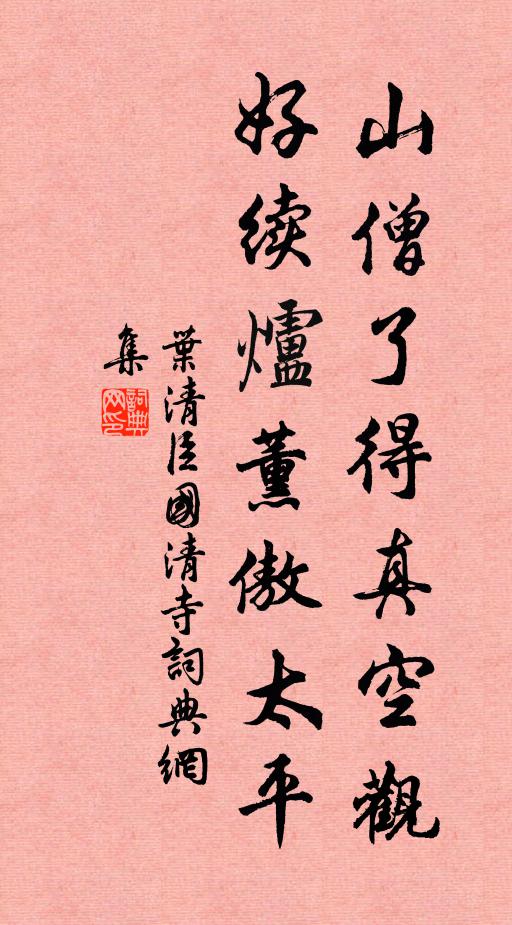 山僧了得真空觀
好续爐薰傲太平
葉清臣國清寺詞典網
集
詞典
网印